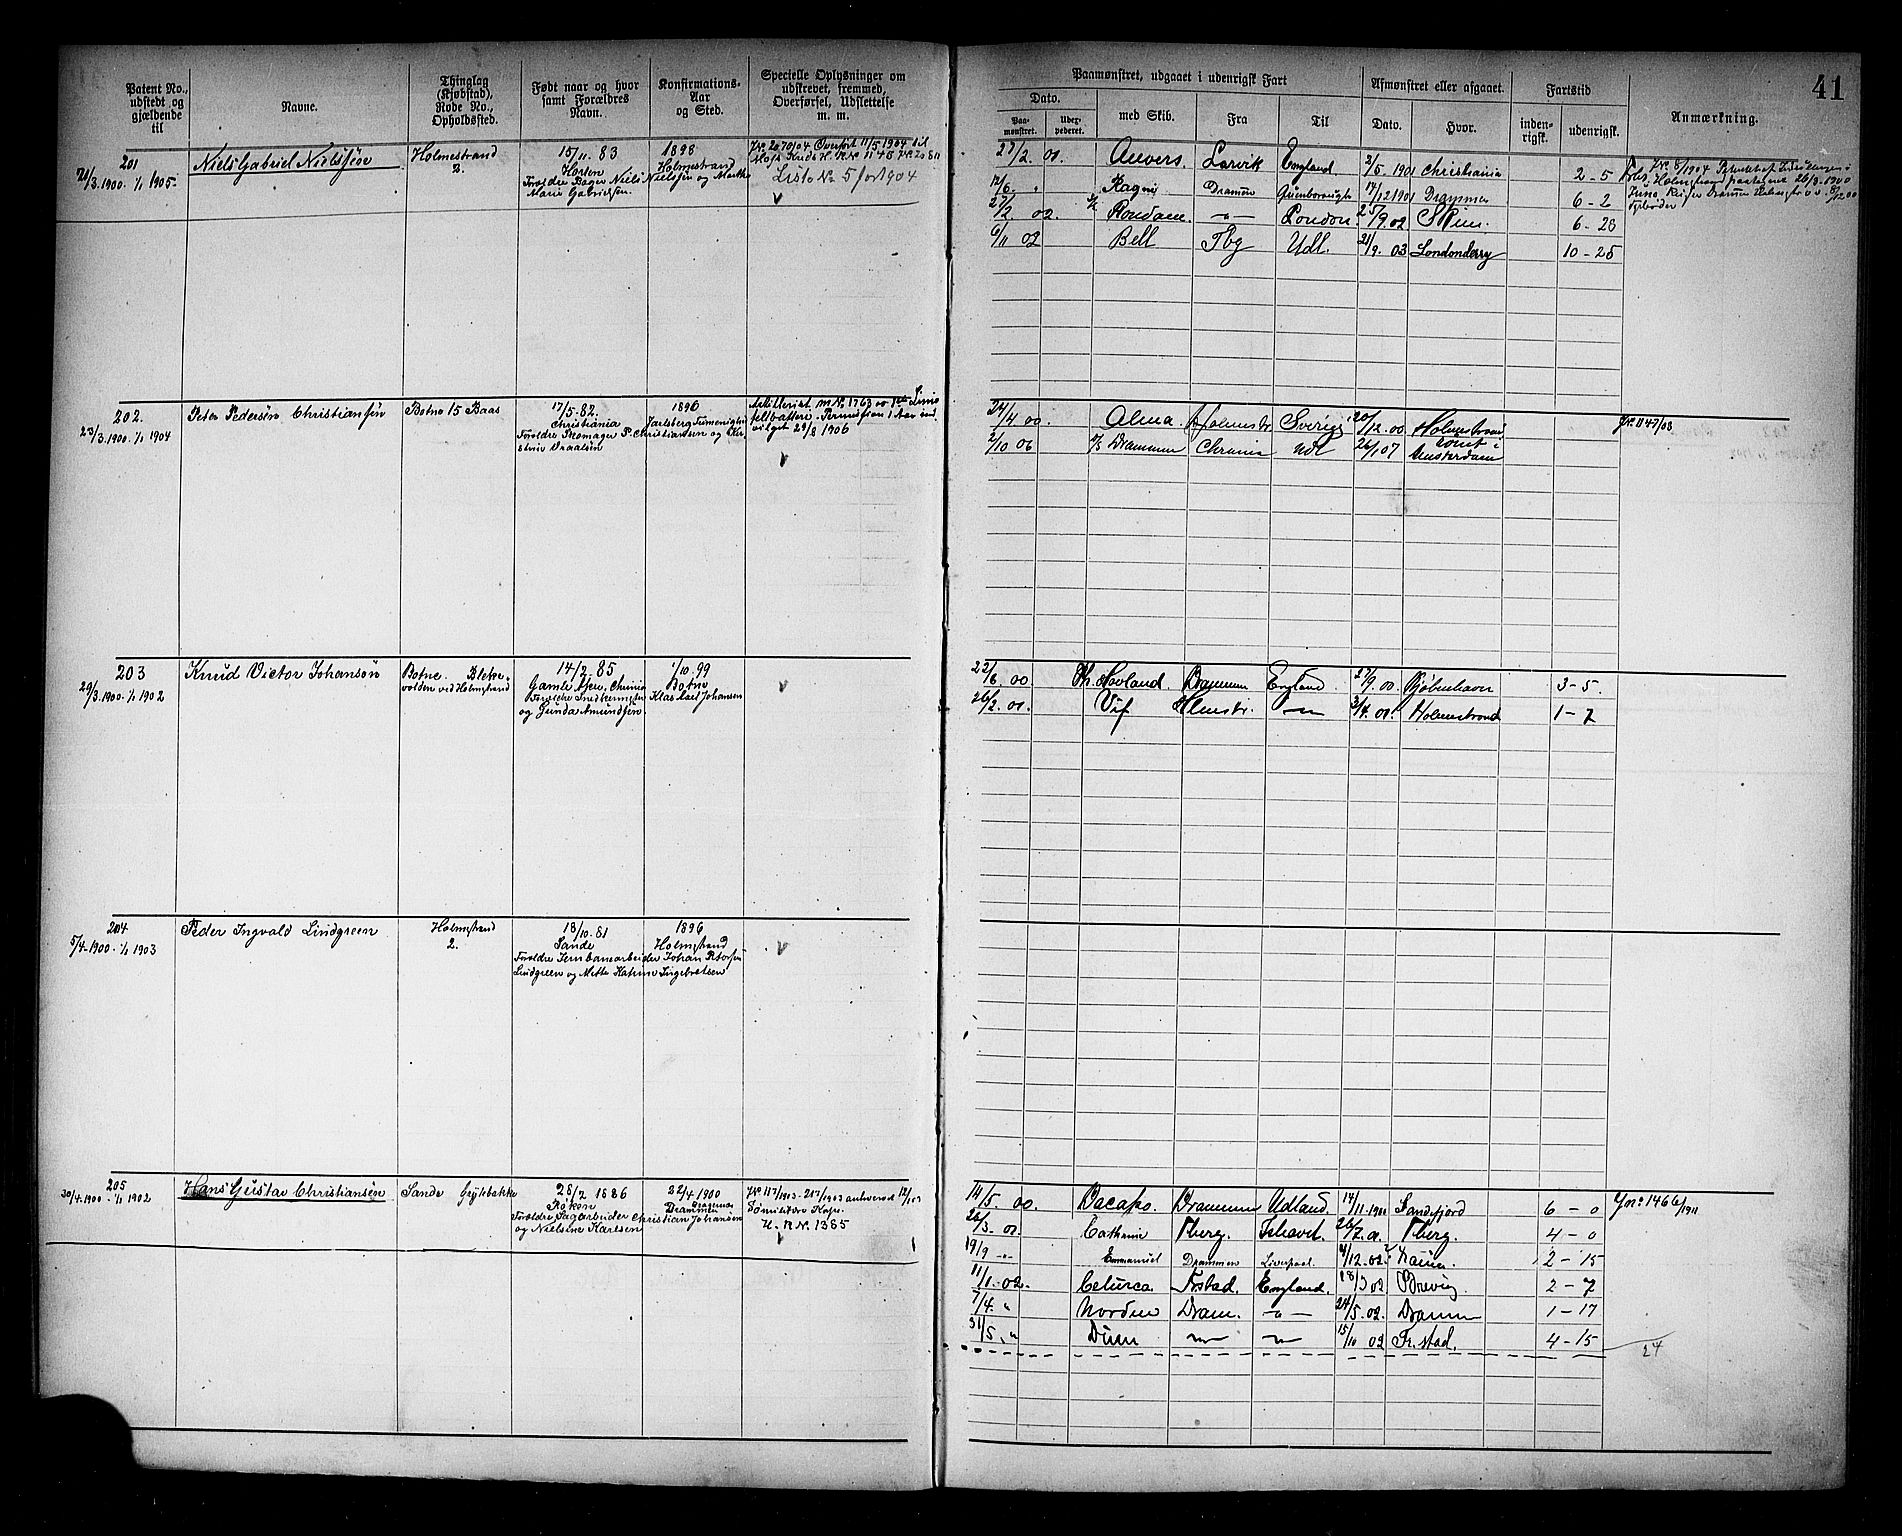 41
Patent No., udstedt og gjældende til
Navne.
Thinglag (Kjøbstad), Rode No., Opholdssted.
Født naar og hvor samt Forældres Navn.
Konfirmations-Aar og Sted.
Specielle Oplysninger om udskrevet, fremmed, Overførsel, Udslettelse m. m.
Paamønstret, udgaaet i udenrigsk Fart
Dato.
Paa-mønstret.
med Skib.
Fra
Til
Afmønstret eller afgaaet.
Dato.
Hvor.
Fartstid
inden-rigsk.
udenrigsk.
Anmærkning.
201
21/3.1900. 1/1 1905.
Niels Gabriel Nielssøn
Holmestrand
2.
15/11. 83
Horten
Forældre Bager Niels Nielsen og Marthe
Marie Gabrielsen
1898
Holmestrand
Overført 11/5 1904 til
Liste No 5 for 1904
27/2. 01. Anvers. Larvik England 2/5 1901 Christiania 2-5
17/6. " Ragni Dramm 17/12 1901 Drammen 6-2
27/2 02. Rondane. -"- London 25/9.02 Skien. 6-28
6/11 02 Bell Tbg Udl. 21/9. 03 Londonderry 10-25
202.
23/3.1900. 1/1 1904
Peter Pedersøn Christiansøn
Botne 15 Baas
17/5.82.
Christiania
Forældre Skomager P. Christiansen og
1896
Jarlsberg
Artillerist m No 1763
Permission 1 Aar ind
vilget 29/8 1906
24/4 00. Alma Holmestr Sverige 20/12. 00 Holmestrand
2/10 06 Drammen Chrania Udl 26/1 07 rømt i
Amsterdam
Jr. 1147/03
203
29/3.1900. 1/1 1902
Knud Victor Johansøn
Botne. Bleke-
volden ved Holmestrand
14/2. 85
Gamle Aker, Chrnia
Forældre Snedkermester
og Gunda Amundsen.
1/10. 99
Botne
Klas Karl Johansen
22/6 00 Th. Hovland. Drammen England 27/9. 00. Kjøbenhavn 3-5.
26/2. 01. Vif Hlmstr. -"- 3/4. 01. Holmestrand 1-7
204
5/4-1900. 1/1 1903
Peder Ingvald Lindgreen
Holmestrand
2.
18/10. 81
Sande
Forældre Jernbanearbeider Johan Petersen
Lindgreen og Mette Katrine Ingebretsen
1896
Holmestrand
205
30/4.1900 1/1 1902
Hans Gustav Christiansen
Sande
28/2 1886
Røken
Forældre Sagarbeider Christian Johansen
og Nielsine Karlsen
22/4 1900
Dragernes
Drammen
U. R No. 1365
14/5. 00. Dacapo. Drammen Udland. 14/11. 1900 Sandefjord 6-0
Jnr. 1466/1911
26/3. 01. Cathrine Tberg. 26/7. 01. Tberg. 4-0
19/9 -"- Emmanuel Drammen Liverpool. 4/12. 02 2-15
11/1. 02. Celurca. Frstad. England. 18/3 02 Brevig 2-7
7/4. " Norden Dram. -"- 24/5. 02. Dramm 1-17
31/5. " Duen -"- -"- 15/10 02 Fr. stad. 4-15
24